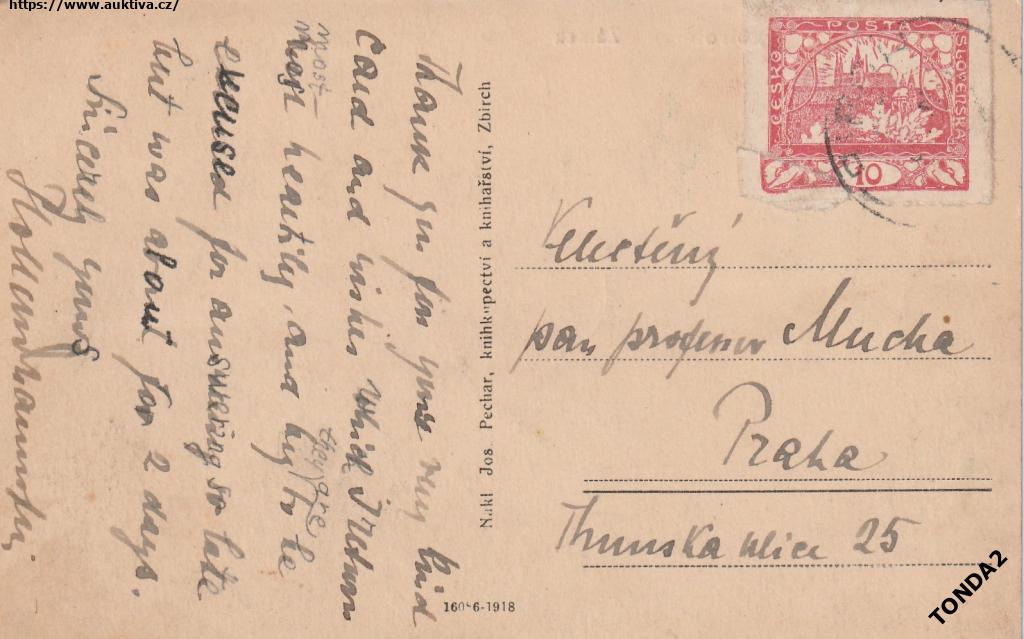 https://www.auktiva.cz/
Thank you for your very kind
card and wishes which I return
most
most heartily, and beg to be
they are
excused for answering so late
but was about for 2 days.
Sincerely yours
Nakl Jos. Pechar, knihkupectví a knihařství, Zbirch
1918
POSTA
ČESKO
SLOVENSKÁ
10
pan professor Mucha
Praha
Thunska ulice 25
TONDA2